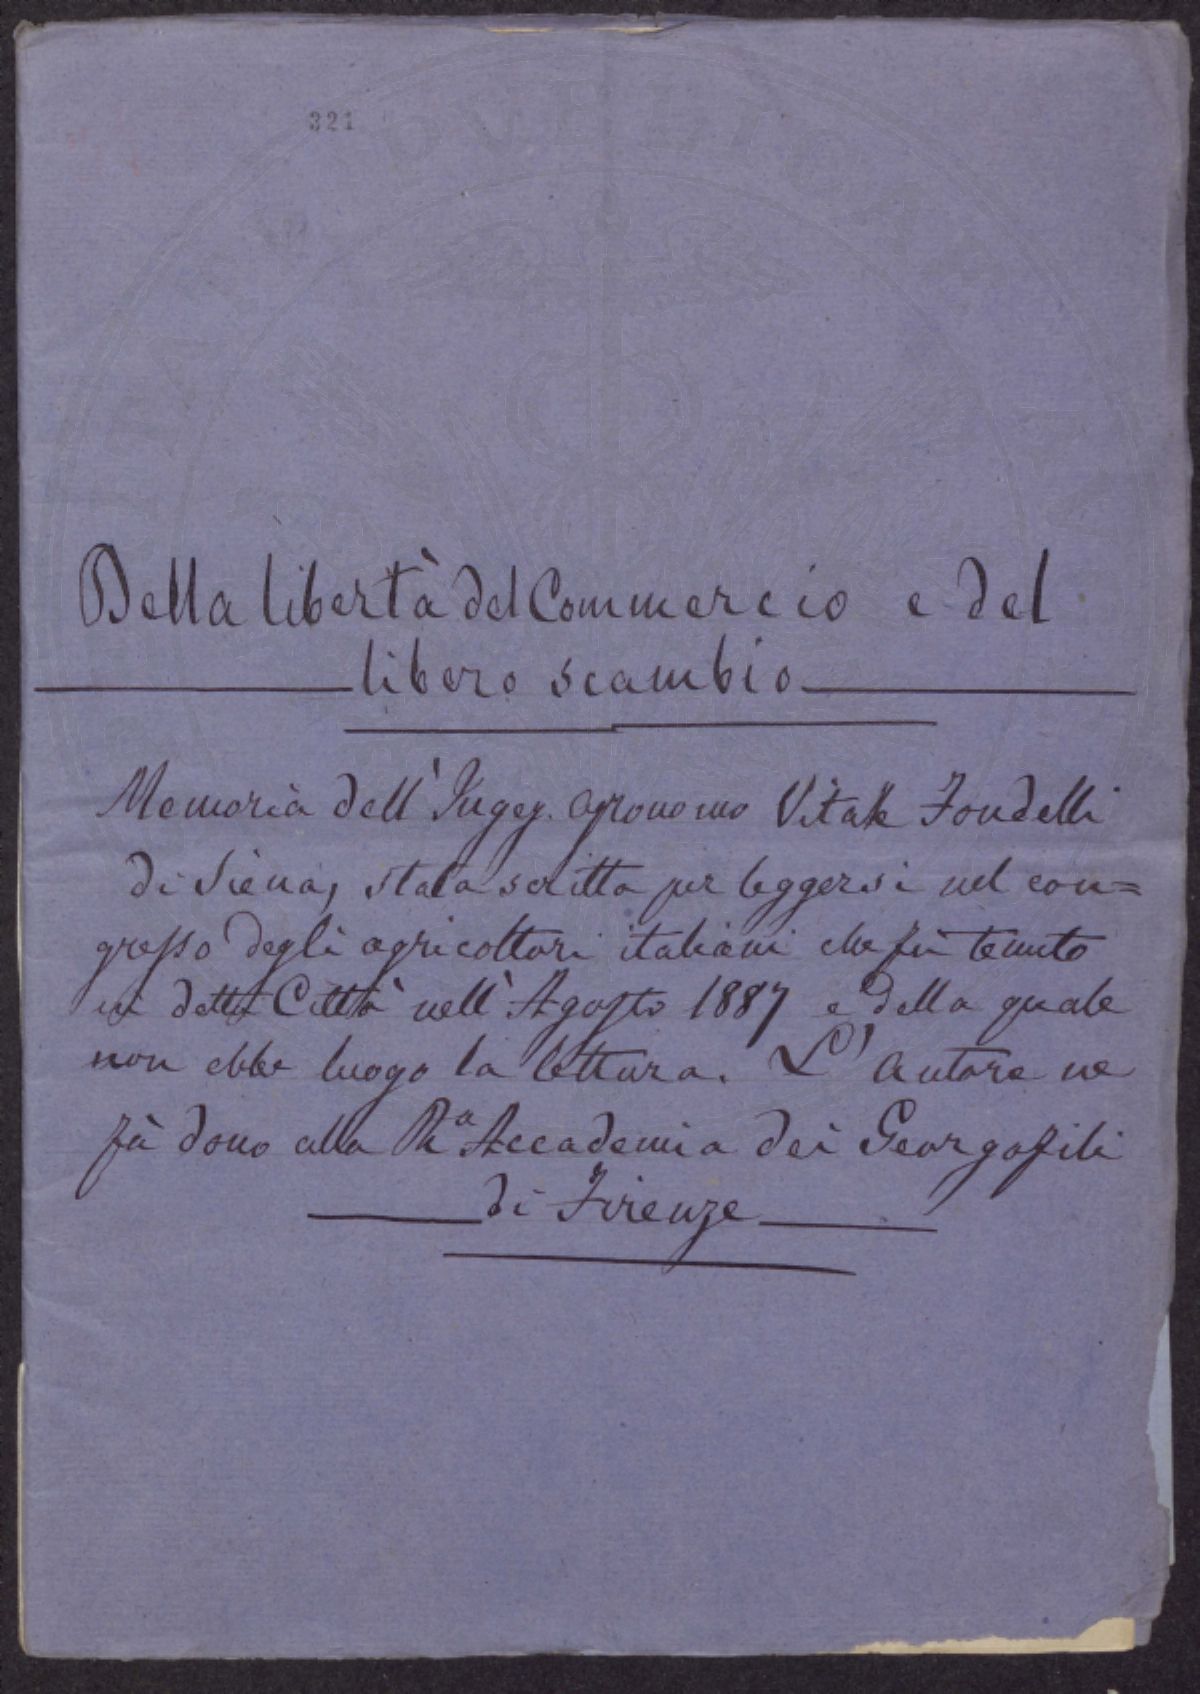 321
Della libertà del Commercio e del
libero scambio
Memoria dell'Ingeg. agronomo Vitale Fondelli
di Siena, stata scritta per leggersi nel con=
gresso degli agricoltori italiani che fù tenuto
in detta Città nell'Agosto 1887 e della quale
non ebbe luogo la lettura. L'autore ne
fà dono alla Rª Accademia dei Georgofili
di Firenze